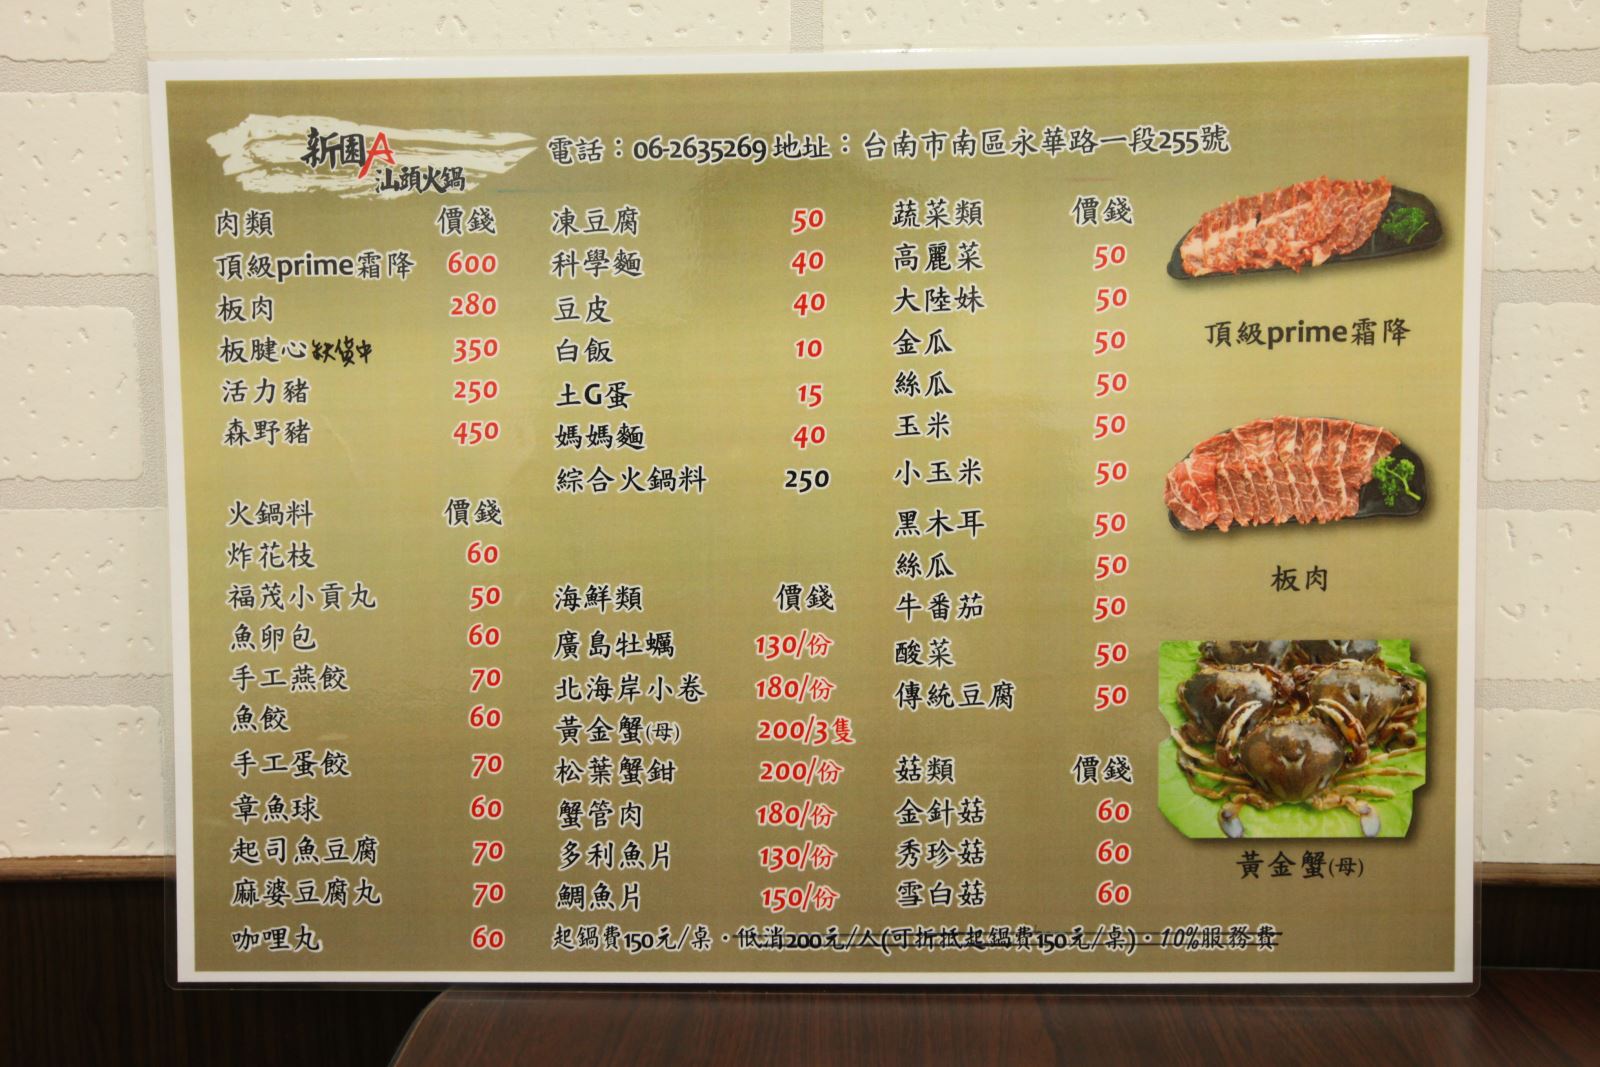 新園A
汕頭火鍋
電話：06-2635269 地址：台南市南區永華路一段255號
肉類 價錢
頂級prime霜降 600
板肉 280
板腱心 缺貨中 350
活力豬 250
森野豬 450
火鍋料 價錢
炸花枝 60
福茂小貢丸 50
魚卵包 60
手工燕餃 70
魚餃 60
手工蛋餃 70
章魚球 60
起司魚豆腐 70
麻婆豆腐丸 70
咖哩丸 60
凍豆腐 50
科學麵 40
豆皮 40
白飯 10
土G蛋 15
媽媽麵 40
綜合火鍋料 250
海鮮類 價錢
廣島牡蠣 130/份
北海岸小卷 180/份
黃金蟹(母) 200/3隻
松葉蟹鉗 200/份
蟹管肉 180/份
多利魚片 130/份
鯛魚片 150/份
蔬菜類 價錢
高麗菜 50
大陸妹 50
金瓜 50
絲瓜 50
玉米 50
小玉米 50
黑木耳 50
絲瓜 50
牛番茄 50
酸菜 50
傳統豆腐 50
菇類 價錢
金針菇 60
秀珍菇 60
雪白菇 60
起鍋費150元/桌・低消200元/人(可折抵起鍋費150元/桌)・10%服務費
頂級prime霜降
板肉
黃金蟹(母)